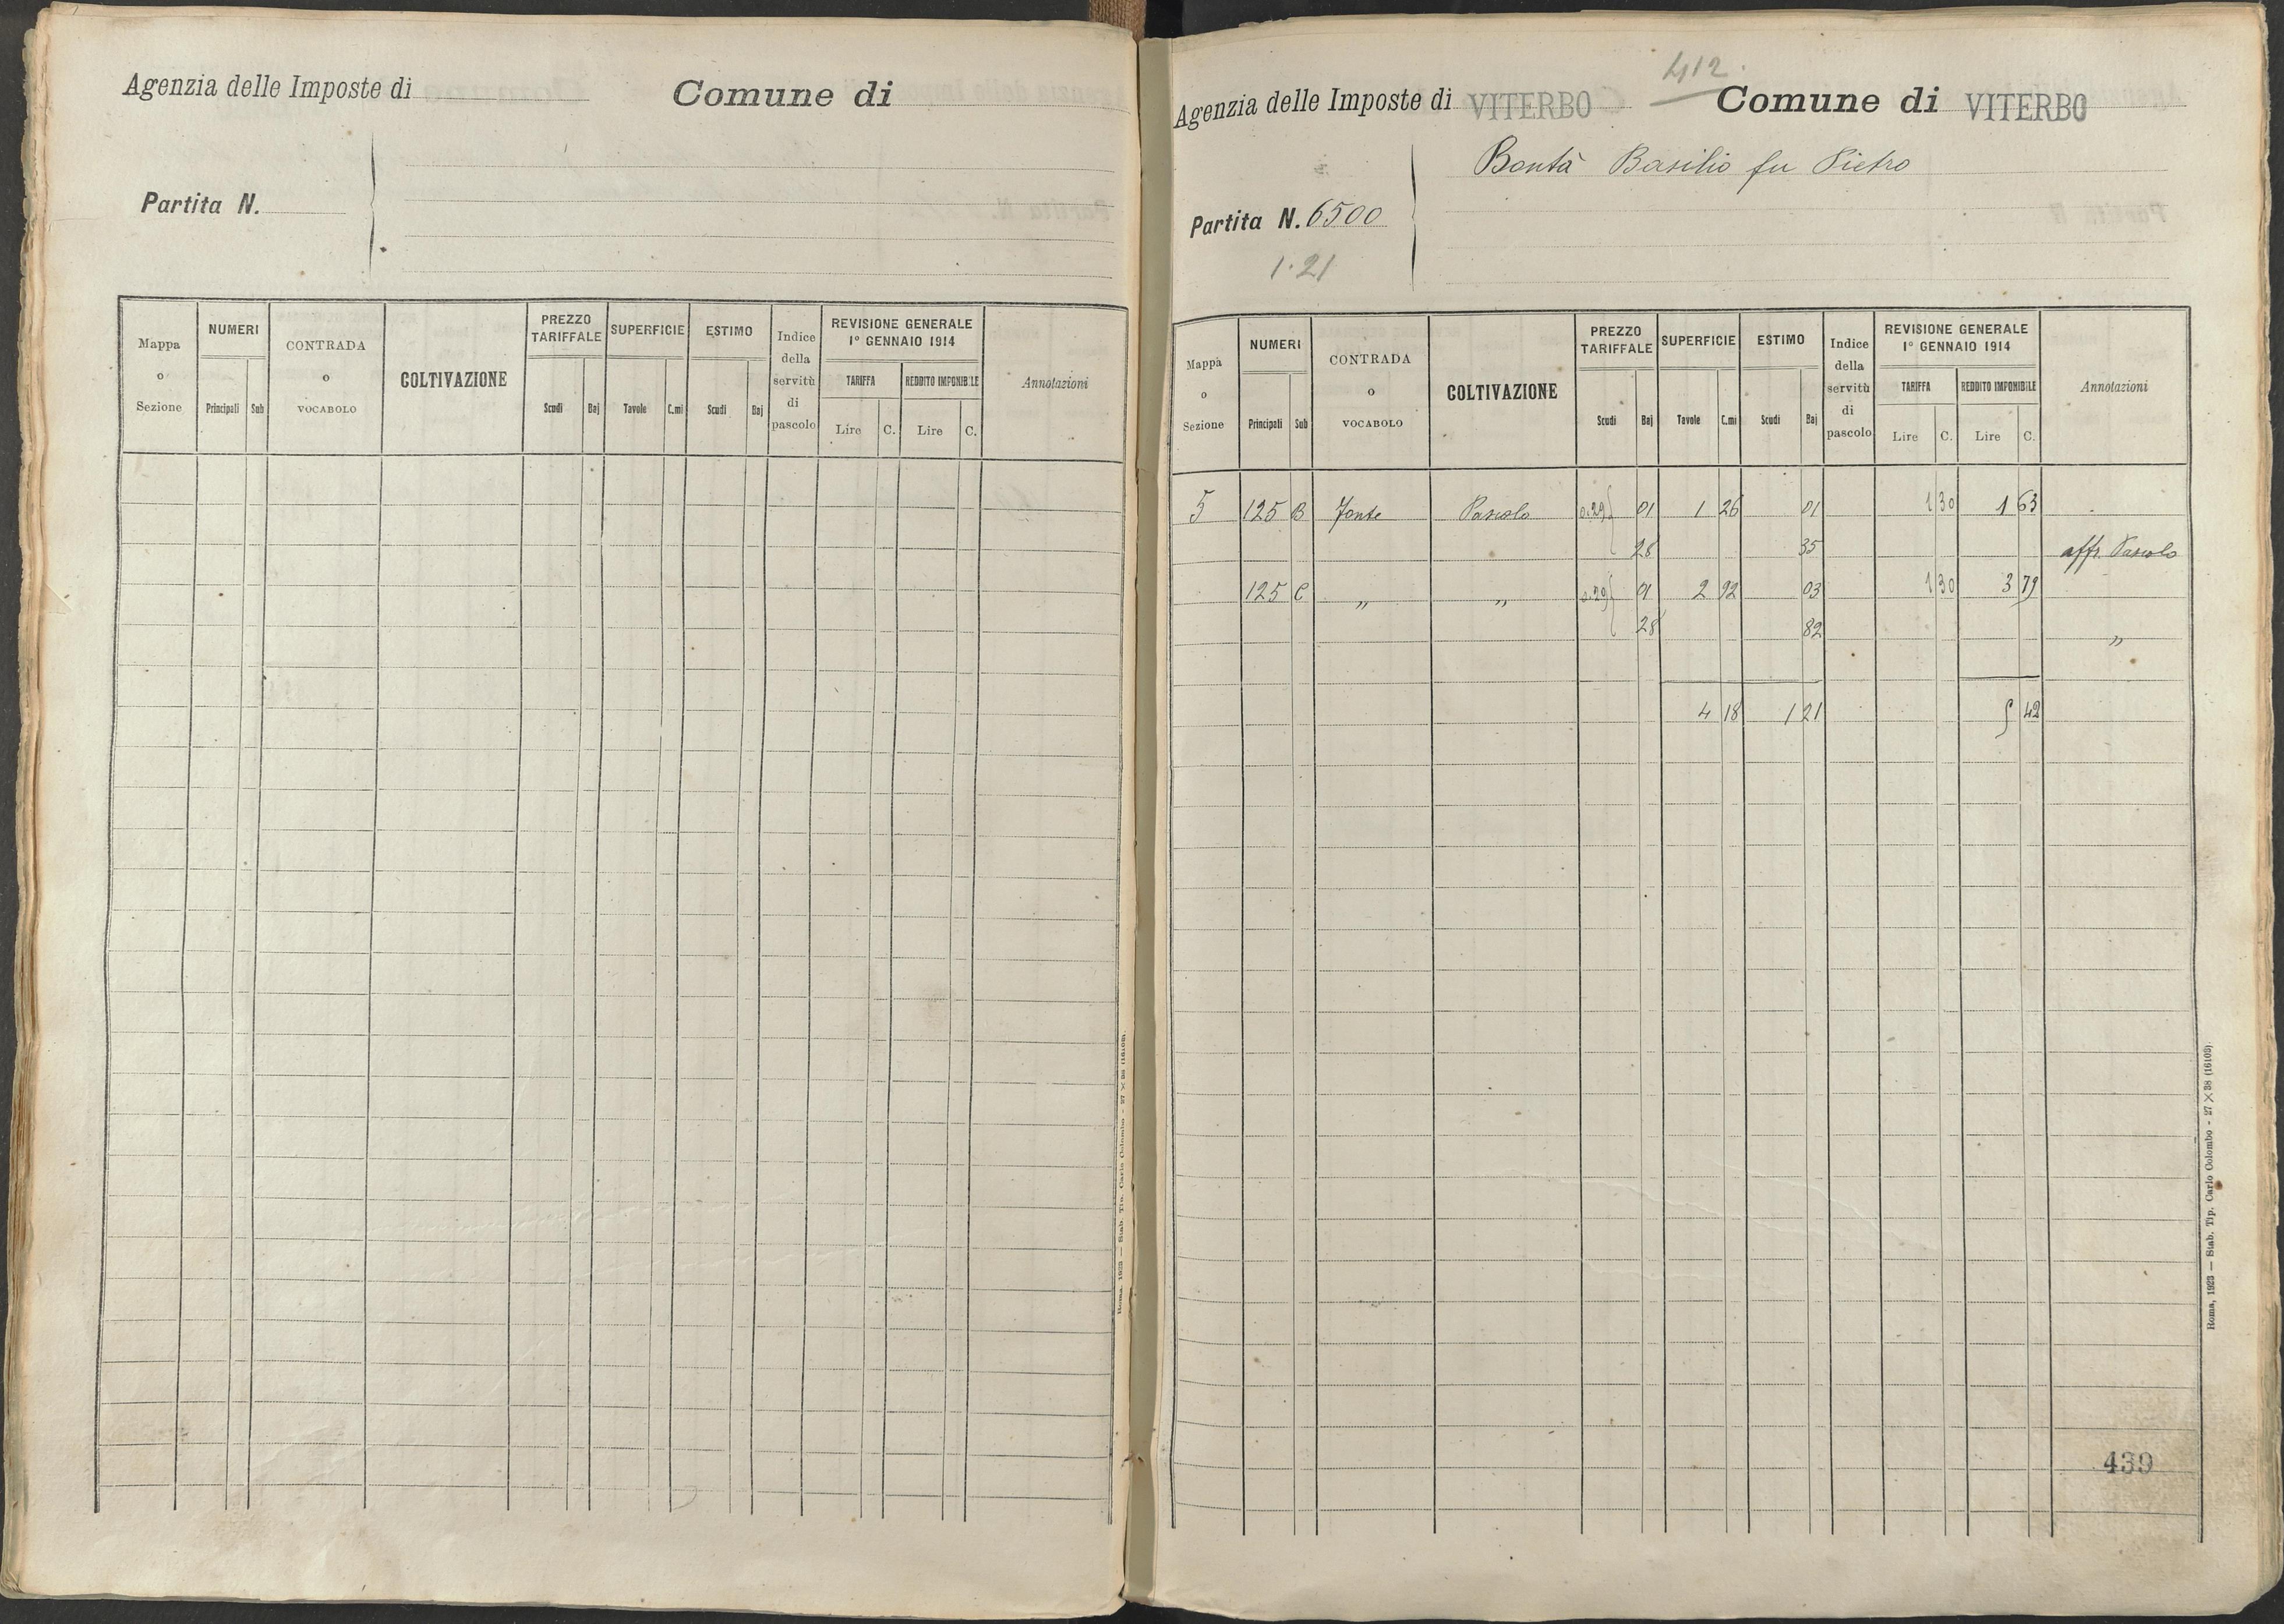 Agenzia delle Imposte di
Comune di
Partita N.
Mappa o Sezione
NUMERI
Principali Sub
CONTRADA o VOCABOLO
COLTIVAZIONE
PREZZO TARIFFALE
Scudi Baj
SUPERFICIE
Tavole C.mi
ESTIMO
Scudi Baj
Indice della servitù di pascolo
REVISIONE GENERALE
1º GENNAIO 1914
TARIFFA
Lire C.
REDDITO IMPONIBILE
Lire C.
Annotazioni
Roma, 1923 — Stab. Tip. Carlo Colombo - 27 × 38 (16109)
412.
Agenzia delle Imposte di VITERBO
Comune di VITERBO
Bontà Basilio fu Pietro
Partita N. 6500
1.21
Mappa o Sezione
NUMERI
Principali Sub
CONTRADA o VOCABOLO
COLTIVAZIONE
PREZZO TARIFFALE
Scudi Baj
SUPERFICIE
Tavole C.mi
ESTIMO
Scudi Baj
Indice della servitù di pascolo
REVISIONE GENERALE
1º GENNAIO 1914
TARIFFA
Lire C.
REDDITO IMPONIBILE
Lire C.
Annotazioni
5 125 B Fonte Pascolo 0.29 01 1 26 01 1 30 1 63
28 35 affr. Pascolo
125 C „ „ 0.29 01 2 92 03 1 30 3 79
28 82 „
4 18 1 21 5 42
439
Roma, 1923 — Stab. Tip. Carlo Colombo - 27 × 38 (16109)